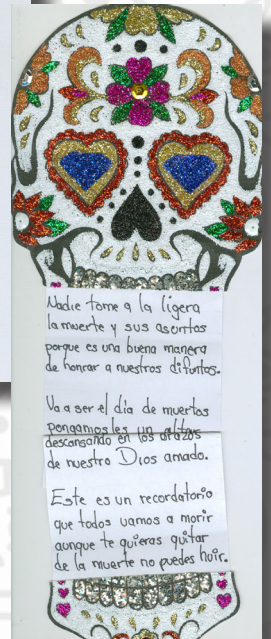 Nadie tome a la ligera
la muerte y sus asuntos
porque es una buena manera
de honrar a nuestros difuntos.
Va a ser el día de muertos
pongamosles un altar
descansando en los brazos
de nuestro Dios amado.
Este es un recordatorio
que todos vamos a morir
aunque te quieras quitar
de la muerte no puedes huir.